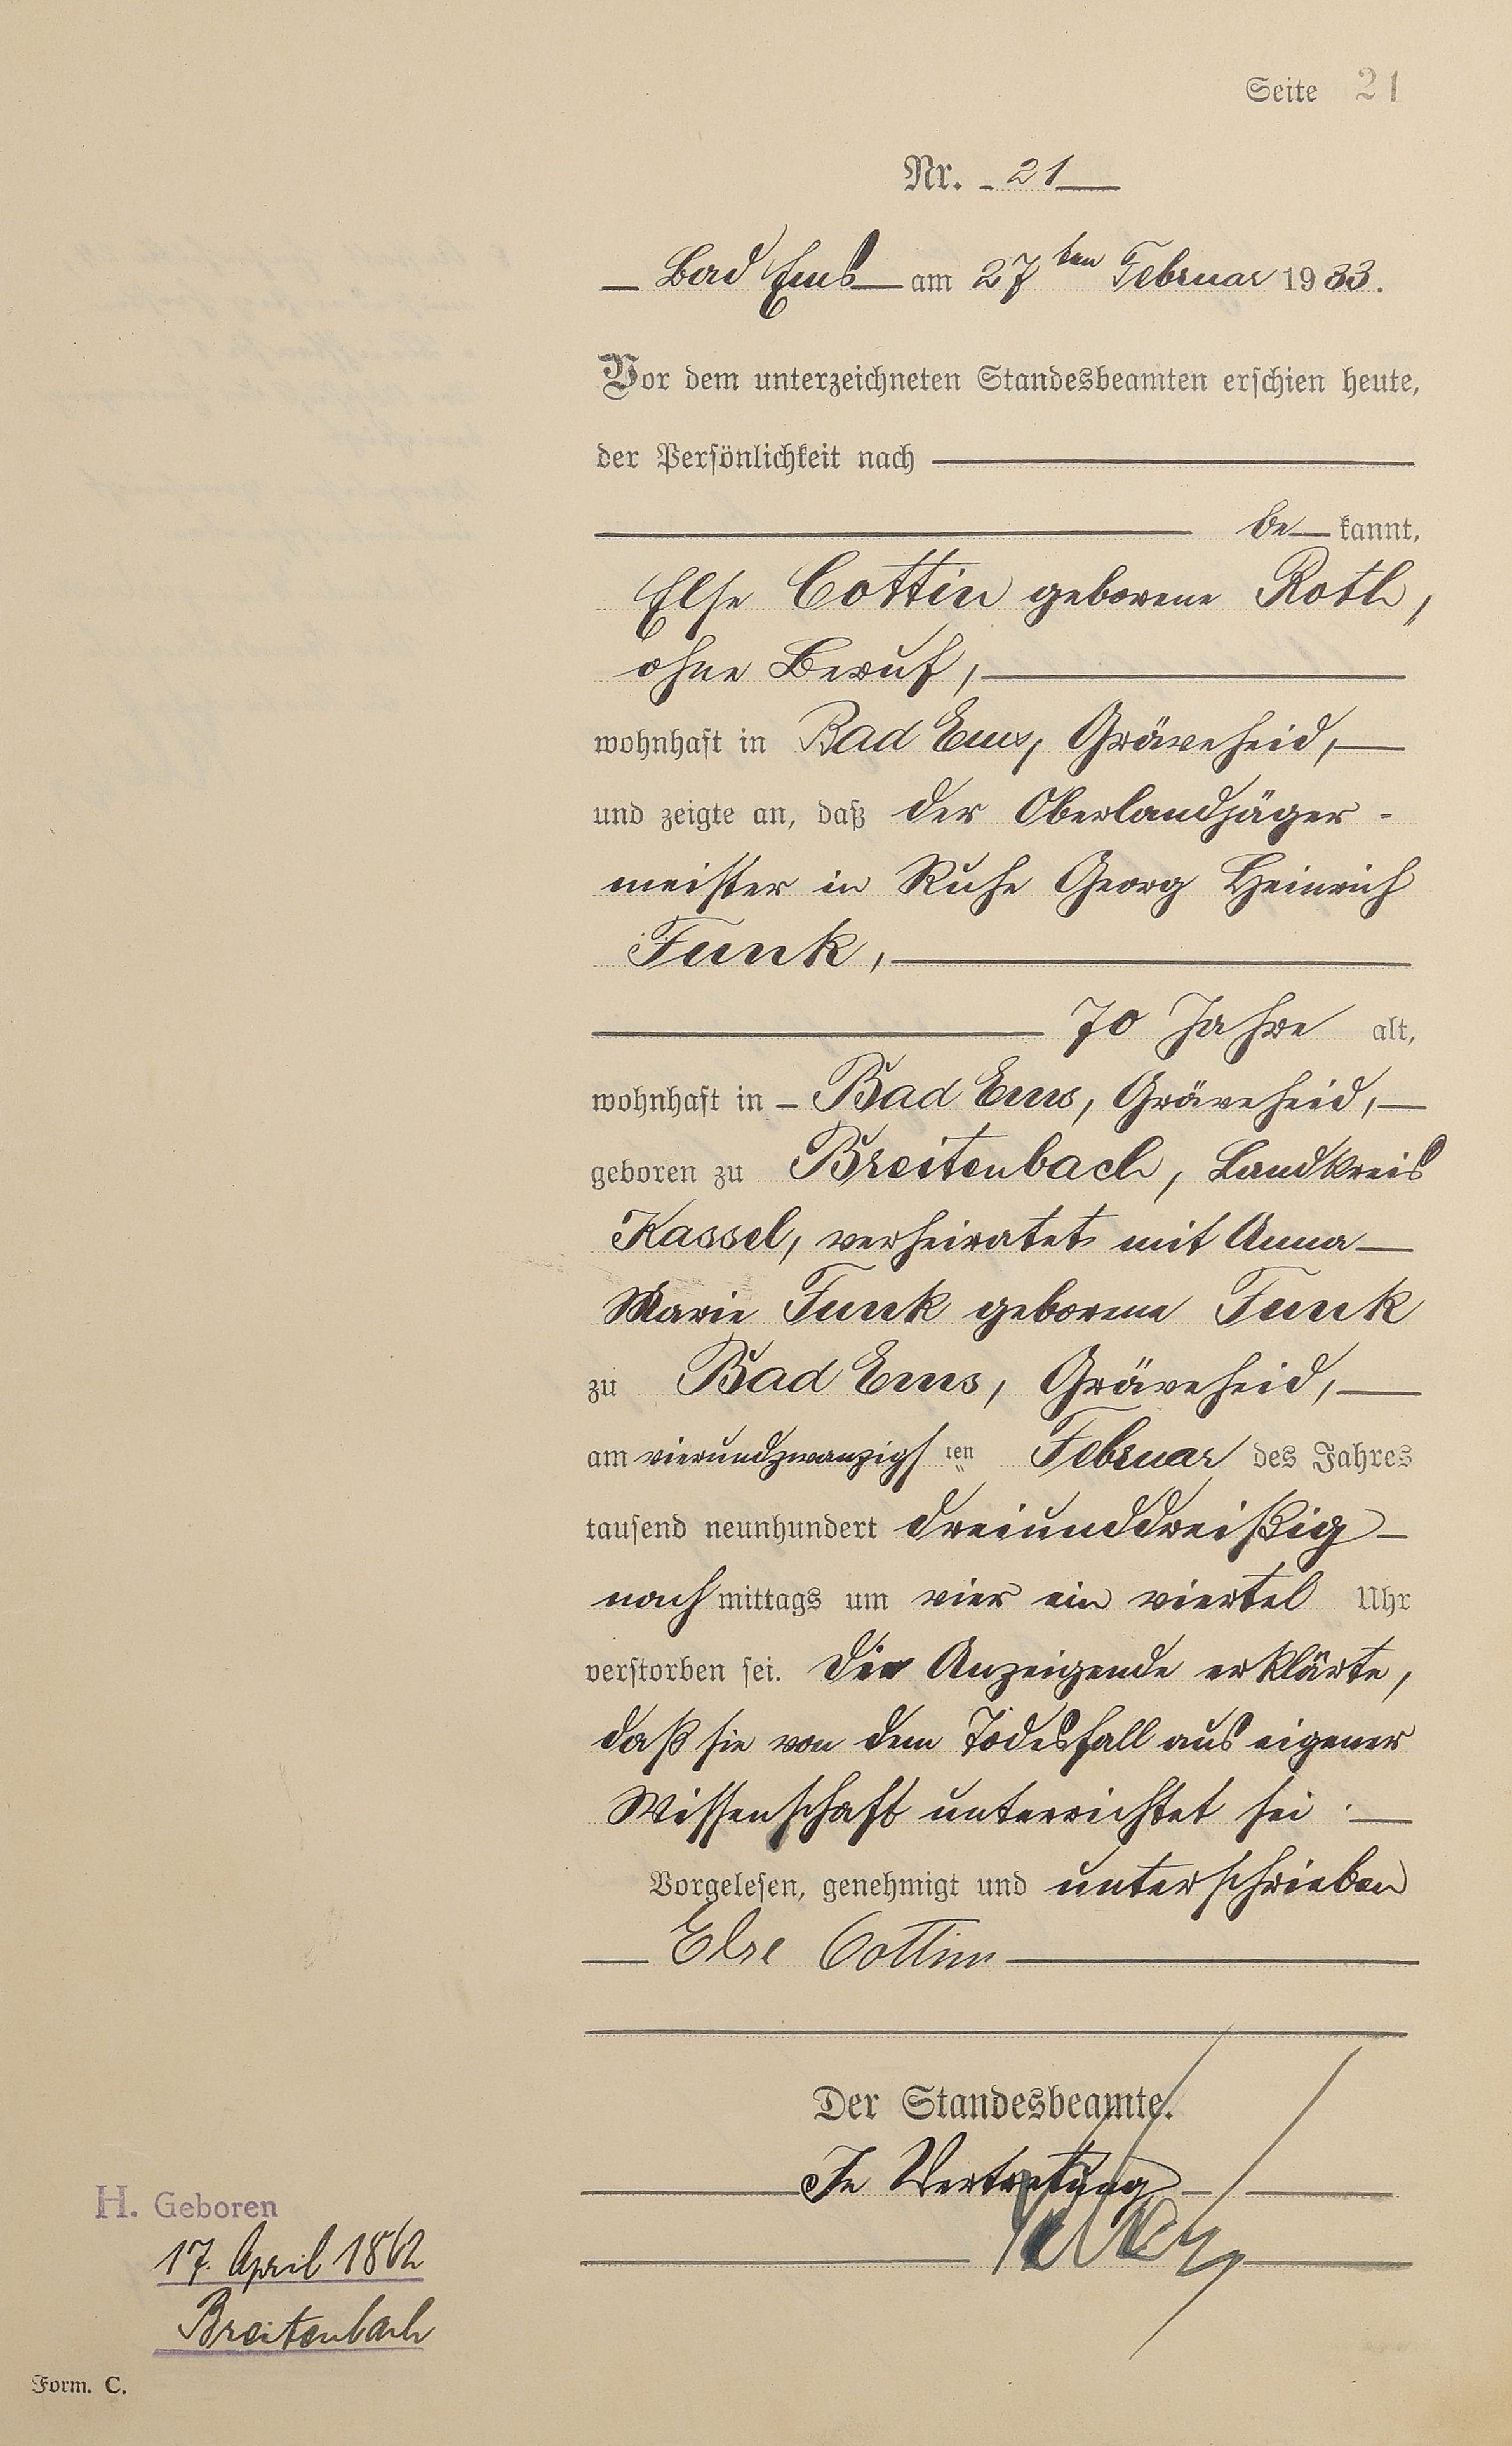 Seite 21
Nr. 21
Bad Ems am 27ten Februar 1933.
Vor dem unterzeichneten Standesbeamten erschien heute,
der Persönlichkeit nach
be kannt,
Else Cottin geborene Roth,
ohne Beruf,
wohnhaft in Bad Ems, Gräveheid,
und zeigte an, daß der Oberlandjäger-
meister in Ruhe Georg Heinrich
Funk,
70 Jahre alt,
wohnhaft in Bad Ems, Gräveheid,
geboren zu Breitenbach, Landkreis
Kassel, verheiratet mit Anna
Marie Funk geborene Funk
zu Bad Ems, Gräveheid,
am vierundzwanzigsten Februar des Jahres
tausend neunhundert dreiunddreißig
nachmittags um vier ein viertel Uhr
verstorben sei. Die Anzeigende erklärte,
daß sie von dem Todesfall aus eigener
Wissenschaft unterrichtet sei.
Vorgelesen, genehmigt und unterschrieben
Else Cottin
Der Standesbeamte.
In Vertretung
H. Geboren
17. April 1862
Breitenbach
Form. C.